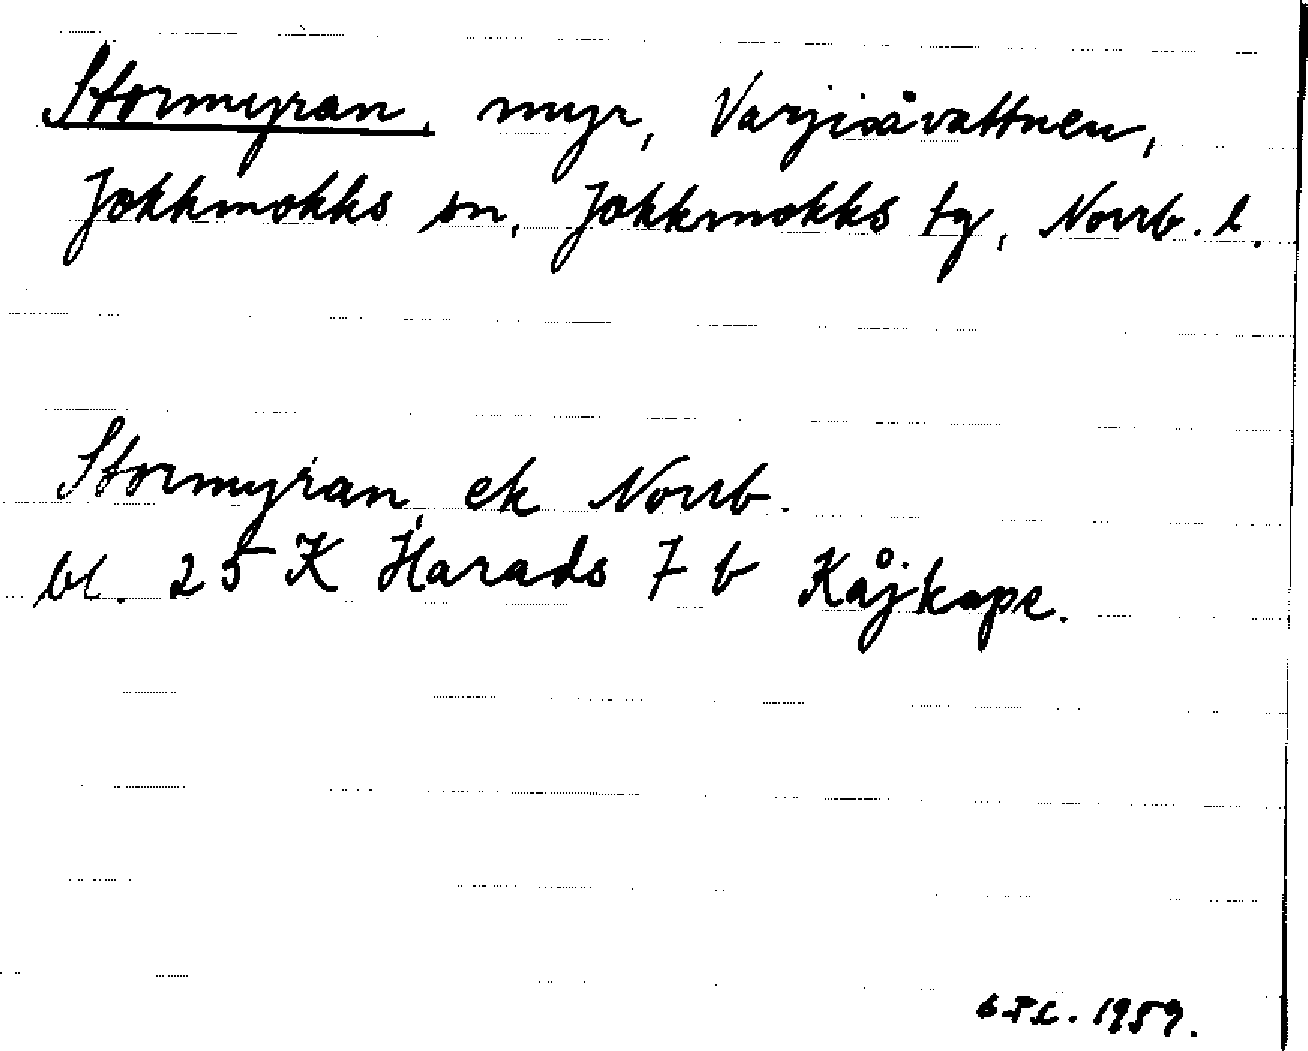 Stormyran, myr, Varjisåvattnen,
Jokkmokks sn, Jokkmokks tg, Norrb. l.
Stormyran, ek Norrb.
bl. 25 K Harads 7 b Kåjkape.
1959.